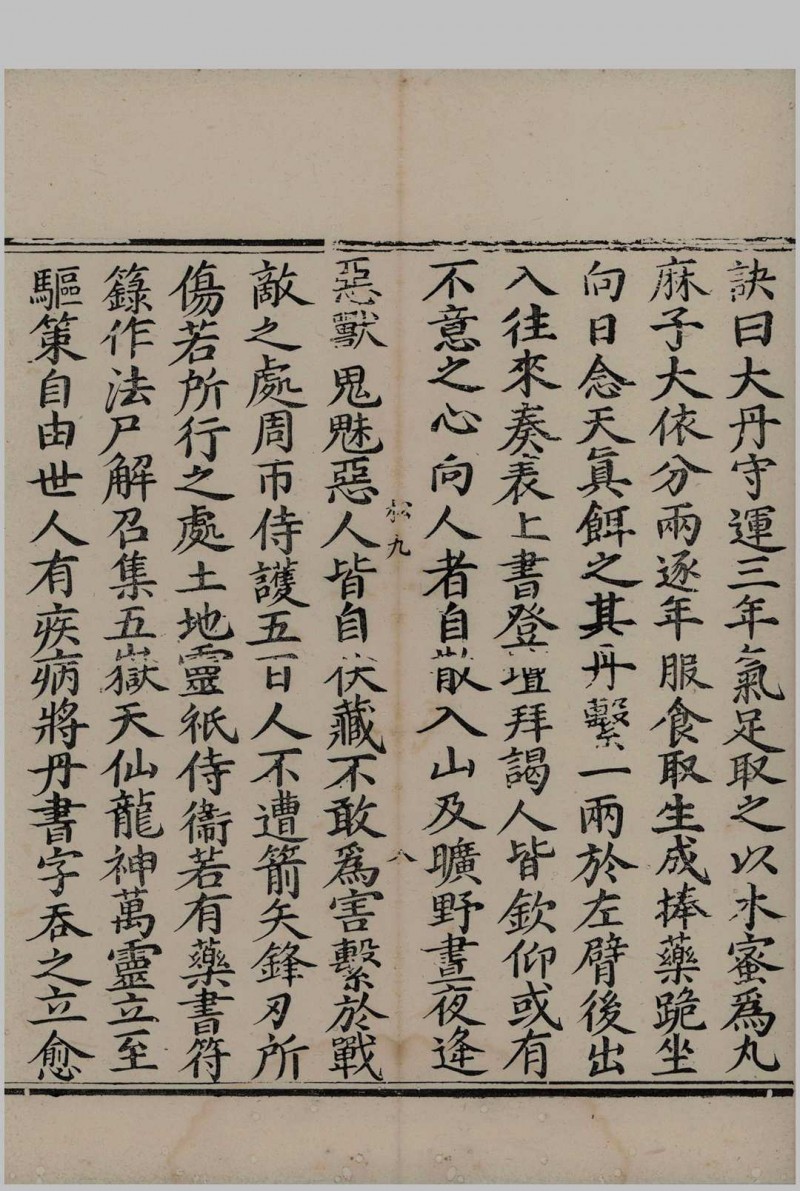 訣曰大丹守運三年氣足取之以水蜜爲丸
麻子大依分兩逐年服食取生成捧藥跪坐
向日念天眞餌之其丹繫一兩於左臂後出
入往來奏表上書登壇拜謁人皆欽仰或有
不意之心向人者自散入山及曠野晝夜逢
松九
八
惡獸鬼魅惡人皆自伏藏不敢爲害繫於戰
敵之處周帀侍護五百人不遭箭矢鋒刃所
傷若所行之處土地靈祇侍衞若有藥書符
籙作法尸解召集五嶽天仙龍神萬靈立至
驅策自由世人有疾病將丹書字吞之立愈